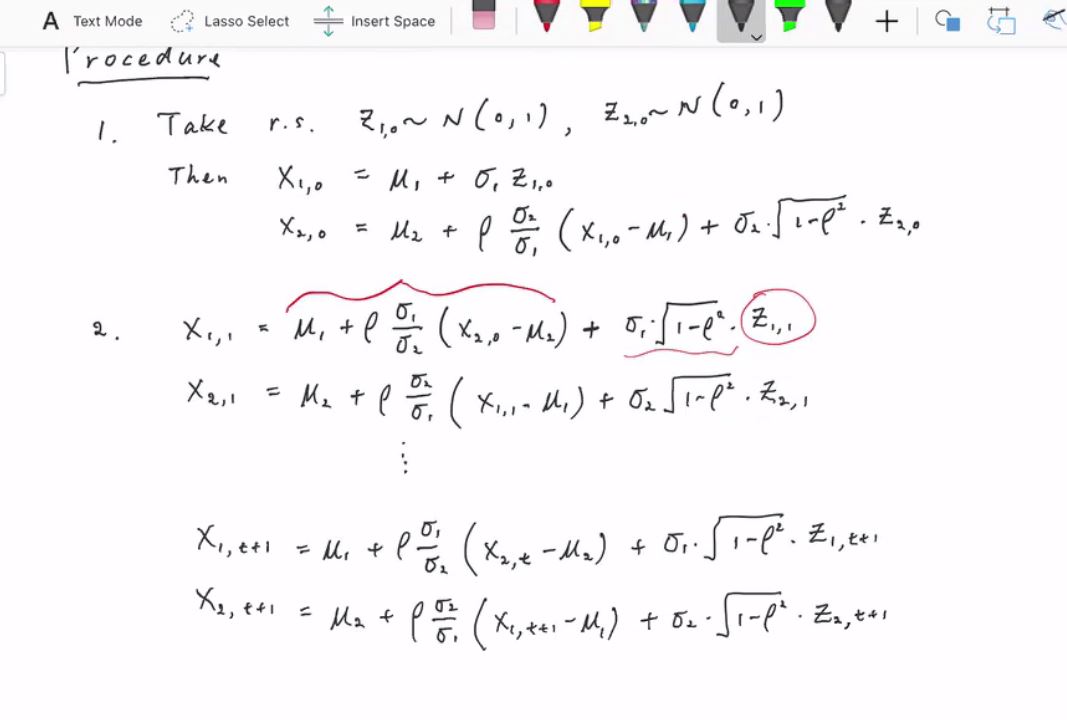 A Text Mode Lasso Select Insert Space
Procedure
1. Take r.s. Z₁,₀ ~ N(0,1), Z₂,₀ ~ N(0,1)
Then X₁,₀ = μ₁ + σ₁ Z₁,₀
X₂,₀ = μ₂ + ρ σ₂/σ₁ (X₁,₀ - μ₁) + σ₂·√(1-ρ²) · Z₂,₀
2. X₁,₁ = μ₁ + ρ σ₁/σ₂ (X₂,₀ - μ₂) + σ₁·√(1-ρ²) · Z₁,₁
X₂,₁ = μ₂ + ρ σ₂/σ₁ (X₁,₁ - μ₁) + σ₂ √(1-ρ²) · Z₂,₁
⋮
X₁,ₜ₊₁ = μ₁ + ρ σ₁/σ₂ (X₂,ₜ - μ₂) + σ₁·√(1-ρ²) · Z₁,ₜ₊₁
X₂,ₜ₊₁ = μ₂ + ρ σ₂/σ₁ (X₁,ₜ₊₁ - μ₁) + σ₂·√(1-ρ²) · Z₂,ₜ₊₁